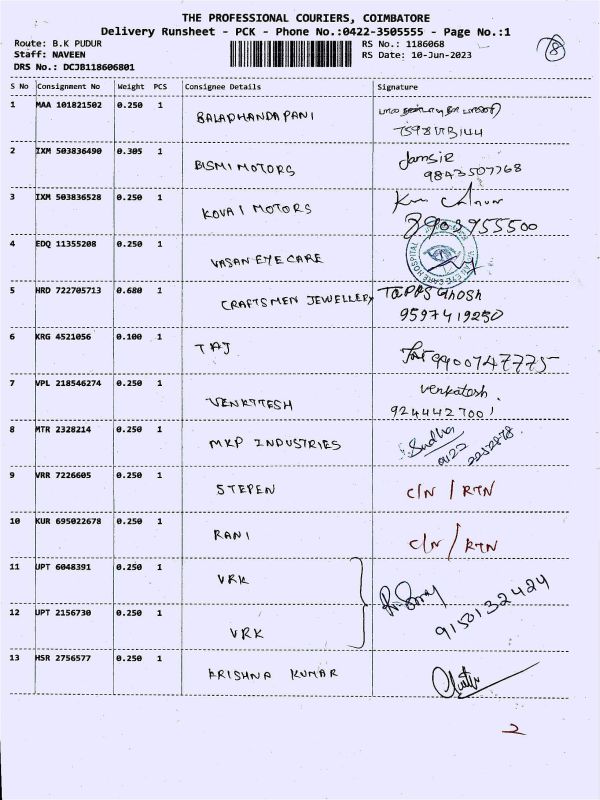 THE PROFESSIONAL COURIERS, COIMBATORE
Delivery Runsheet - PCK - Phone No.:0422-3505555 - Page No.:1
Route: B.K PUDUR RS No.: 1186068
Staff: NAVEEN RS Date: 10-Jun-2023
DRS No.: DCJB118606801
8
S No Consignment No Weight PCS Consignee Details Signature
1 MAA 101821502 0.250 1 BALADHANDAPANI
2 IXM 503836490 0.305 1 BISMI MOTORS Jamsie
9843507768
3 IXM 503836528 0.250 1 KOVAI MOTORS
8903955500
4 EDQ 11355208 0.250 1 VASAN EYE CARE EYE CARE HOSPITAL
5 HRD 722705713 0.680 1 CRAFTSMEN JEWELLERY TAPAS Ghosh
9597419250
6 KRG 4521056 0.100 1 TAJ 9900747775
7 VPL 218546274 0.250 1 VENKTTESH Venkatesh
9244427001
8 MTR 2328214 0.250 1 MKP INDUSTRIES Sudha
0422
2252878
9 VRR 7226605 0.250 1 STEPEN C/N / RTN
10 KUR 695022678 0.250 1 RANI C/N / RTN
11 UPT 6048391 0.250 1 VRK
9150132424
12 UPT 2156730 0.250 1 VRK
13 HSR 2756577 0.250 1 KRISHNA KUMAR
2